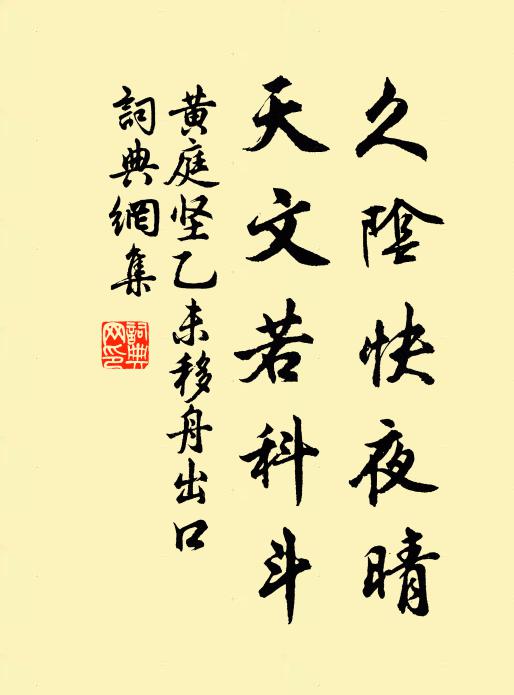 久陰快夜晴
天文若科斗
黄庭坚乙未移舟出口
詞典網集
詞典網印